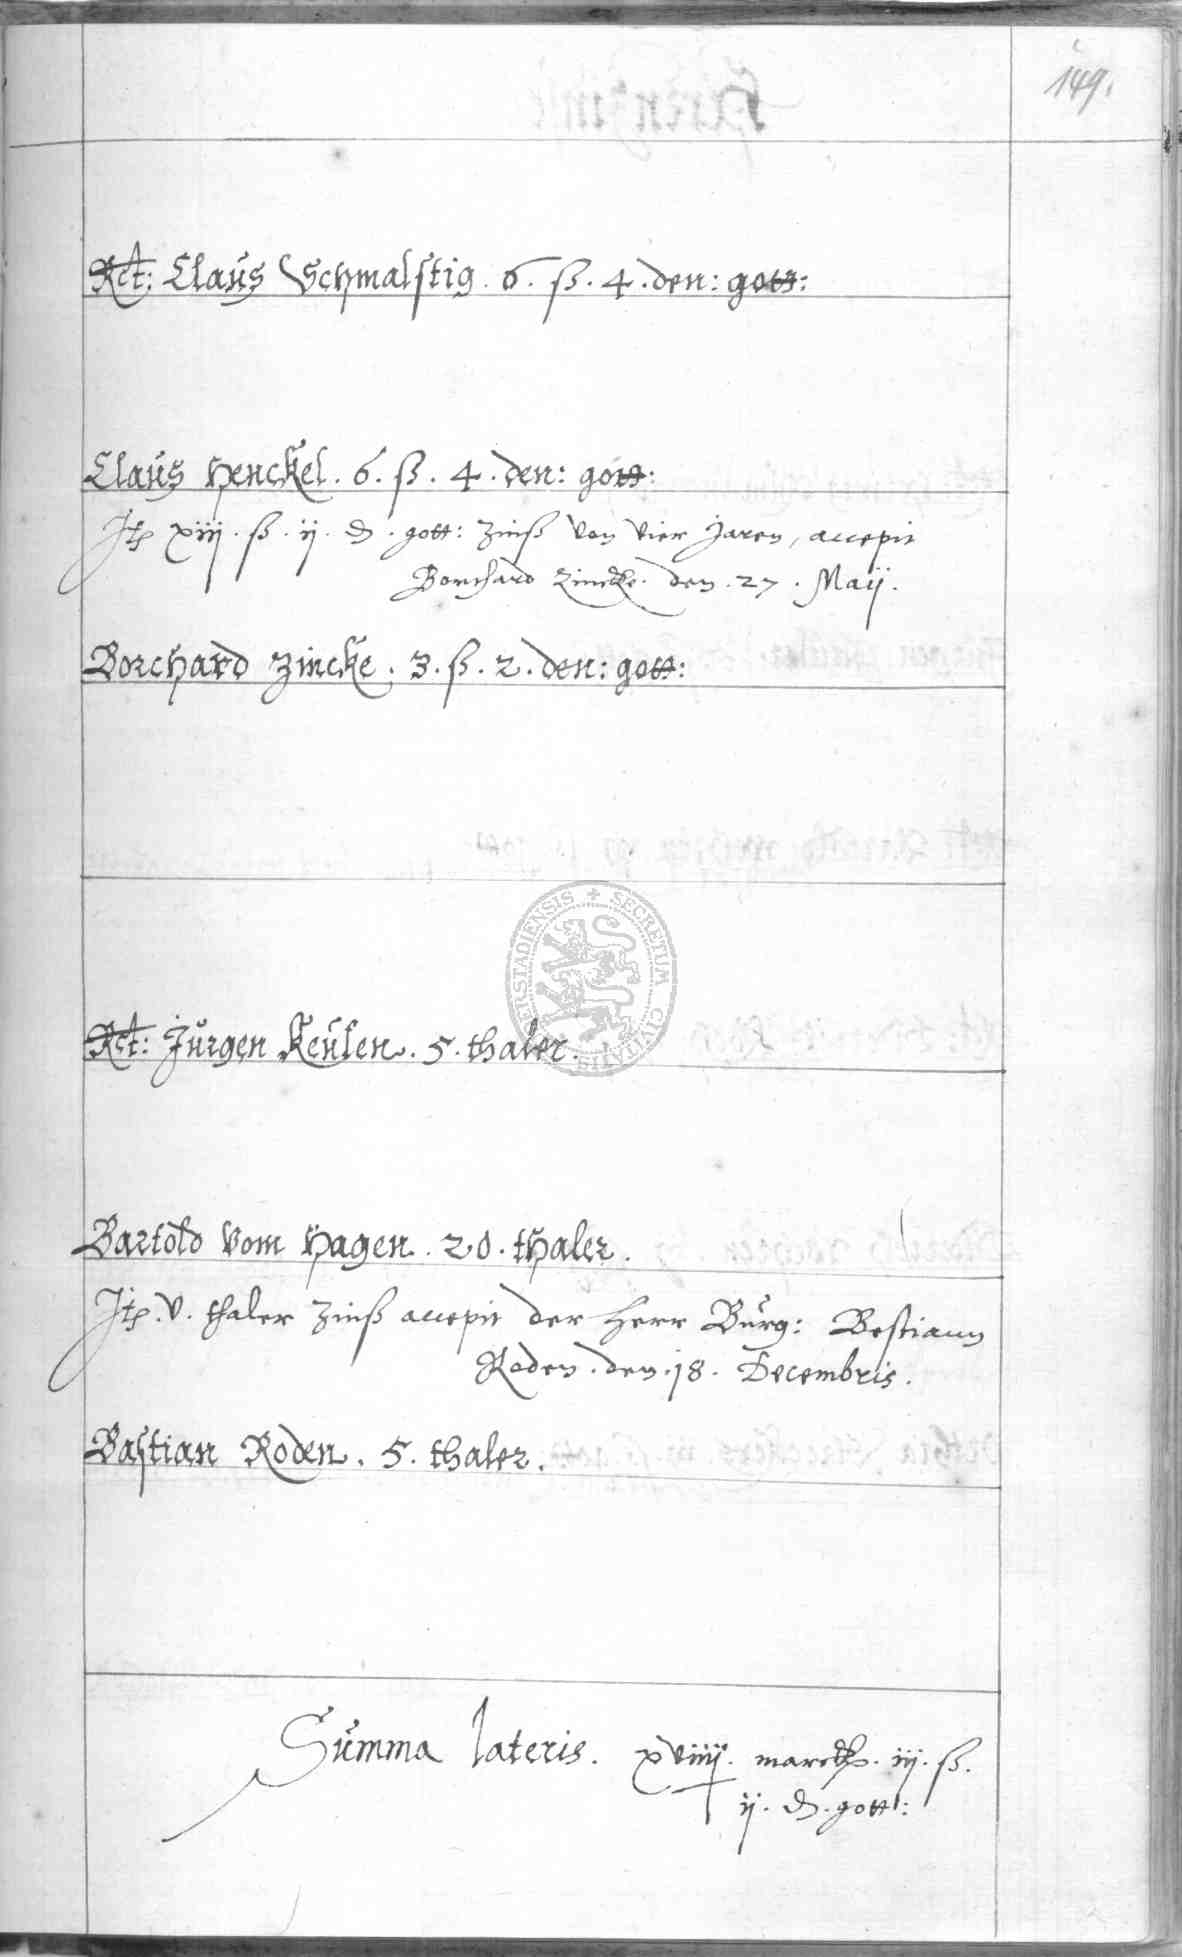 149.
Rct: Claus Schmalstig. 6. ß. 4. den: gott:
Claus Henckel. 6. ß. 4. den: gott:
Jtp xiij. ß. ij. d. gott: Zinß von vier Jaren, accepit
Borchard Zincke. den. 27. Maij.
Borchard Zincke. 3. ß. 2. den: gott:
ERSTADIENSIS + SECRETUM CIVITATIS
Rct: Jürgen Keulen. 5. thaler.
Bartold vom Hagen. 20. thaler.
Jtp. v. thaler Zinß accepit der Herr Burg: Bestiann
Roden. den. 18. Decembris.
Bastian Roden. 5. thaler.
Summa lateris. marck. iij. ß.
ij. d. gott: